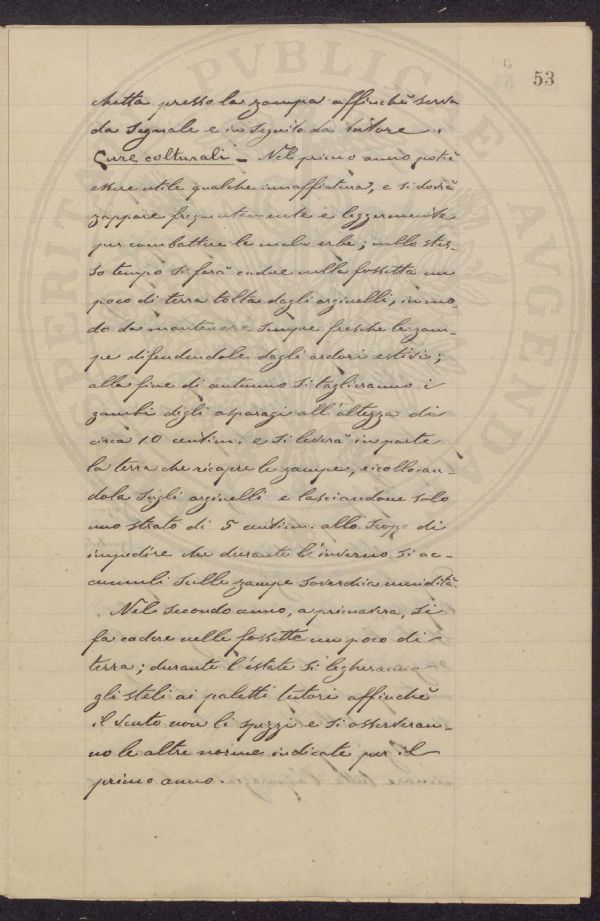 53
chetta presso la zampa affinchè serva
da segnale e in seguito da tutore.
Cure colturali – Nel primo anno potrà
essere utile qualche innaffiatura, e si dovrà
zappare frequentemente e leggermente
per combattere le male erbe; nello stes-
so tempo si farà cadere nella fossetta un
poco di terra tolta dagli arginelli, in mo-
do da mantenere sempre fresche le zam-
pe difendendole dagli ardori estivi;
alla fine di autunno si taglieranno i
gambi degli asparagi all'altezza di
circa 10 centim. e si leverà in parte
la terra che ricopre le zampe, ricollocan-
dola sugli arginelli e lasciandone solo
uno strato di 5 centim. allo scopo di
impedire che durante l'inverno si ac-
cumuli sulle zampe soverchia umidità.
Nel secondo anno, a primavera, si
fa cadere nelle fossette un poco di
terra; durante l'estate si legheranno
gli steli ai paletti tutori affinchè
il vento non li spezzi e si osserveran-
no le altre norme indicate per il
primo anno.
PVBLICAE
VGENDAE